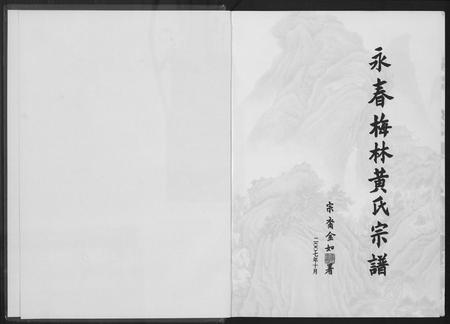 永春梅林黄氏宗譜
宗裔金如署
二〇〇七年十月